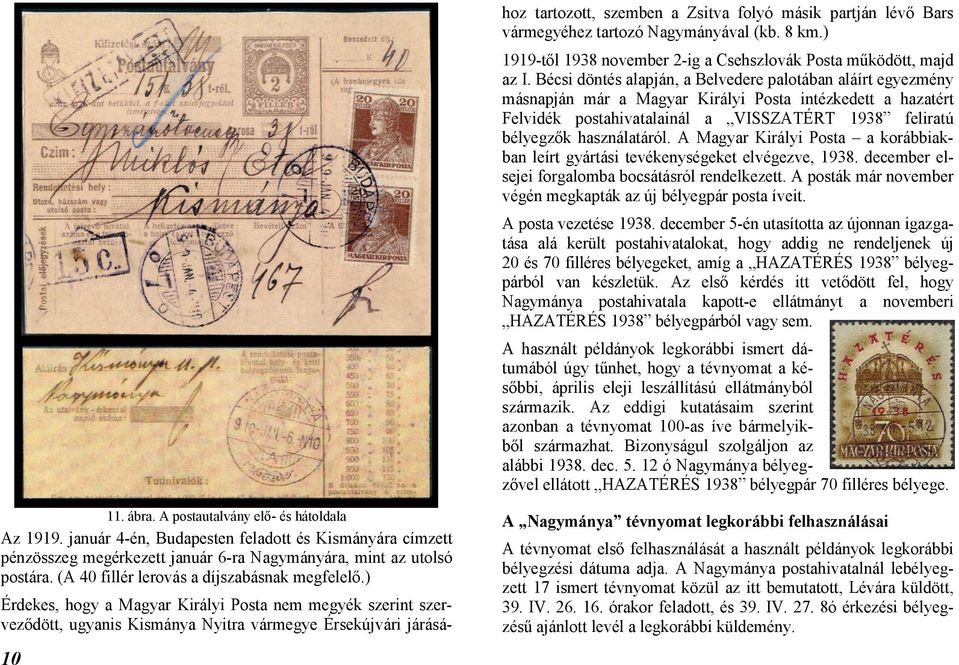 Kifizetési szám
Postautalvány
157 k 38 f-ről,
MAGYAR KIR. POSTA
2
FILLÉR
40
korona 38 f-ről
Czim: Miklós Etel
Rendeltetési hely:
Utcza, házszám vagy
utolsó posta:
Kismánya
20 20
FILLÉR
MAGYAR KIR. POSTA
MAGYAR KIR. POSTA
BUDAPEST
Postai előjegyzések
15 c.
167
Aláírás Kismánya u. p.
Nagymánya
Az utalvány érkezési
napló száma:
918 JAN. -6. N10
Tudnivalók:
11. ábra. A postautalvány elő- és hátoldala
Az 1919. január 4-én, Budapesten feladott és Kismányára címzett
pénzösszeg megérkezett január 6-ra Nagymányára, mint az utolsó
postára. (A 40 fillér lerovás a díjszabásnak megfelelő.)
Érdekes, hogy a Magyar Királyi Posta nem megyék szerint szer-
veződött, ugyanis Kismánya Nyitra vármegye Érsekújvári járásá-
10
hoz tartozott, szemben a Zsitva folyó másik partján lévő Bars
vármegyéhez tartozó Nagymányával (kb. 8 km.)
1919-től 1938 november 2-ig a Csehszlovák Posta működött, majd
az I. Bécsi döntés alapján, a Belvedere palotában aláírt egyezmény
másnapján már a Magyar Királyi Posta intézkedett a hazatért
Felvidék postahivatalainál a „VISSZATÉRT 1938 feliratú
bélyegzők használatáról. A Magyar Királyi Posta – a korábbiak-
ban leírt gyártási tevékenységeket elvégezve, 1938. december el-
sejei forgalomba bocsátásról rendelkezett. A posták már november
végén megkapták az új bélyegpár posta íveit.
A posta vezetése 1938. december 5-én utasította az újonnan igazga-
tása alá került postahivatalokat, hogy addig ne rendeljenek új
20 és 70 filléres bélyegeket, amíg a „HAZATÉRÉS 1938 bélyeg-
párból van készletük. Az első kérdés itt vetődött fel, hogy
Nagymánya postahivatala kapott-e ellátmányt a novemberi
„HAZATÉRÉS 1938” bélyegpárból vagy sem.
A használt példányok legkorábbi ismert dá-
tumából úgy tűnhet, hogy a tévnyomat a ké-
sőbbi, április eleji leszállítású ellátmányból
származik. Az eddigi kutatásaim szerint
azonban a tévnyomat 100-as íve bármelyik-
ből származhat. Bizonyságul szolgáljon az
alábbi 1938. dec. 5. 12 ó Nagymánya bélyeg-
zővel ellátott „HAZATÉRÉS 1938” bélyegpár 70 filléres bélyege.
HAZATÉRÉS
1938
70
MAGYAR KIR. POSTA
A „Nagymánya” tévnyomat legkorábbi felhasználásai
A tévnyomat első felhasználását a használt példányok legkorábbi
bélyegzési dátuma adja. A Nagymánya postahivatalnál lebélyeg-
zett 17 ismert tévnyomat közül az itt bemutatott, Lévára küldött,
39. IV. 26. 16. órakor feladott, és 39. IV. 27. 8ó érkezési bélyeg-
zésű ajánlott levél a legkorábbi küldemény.